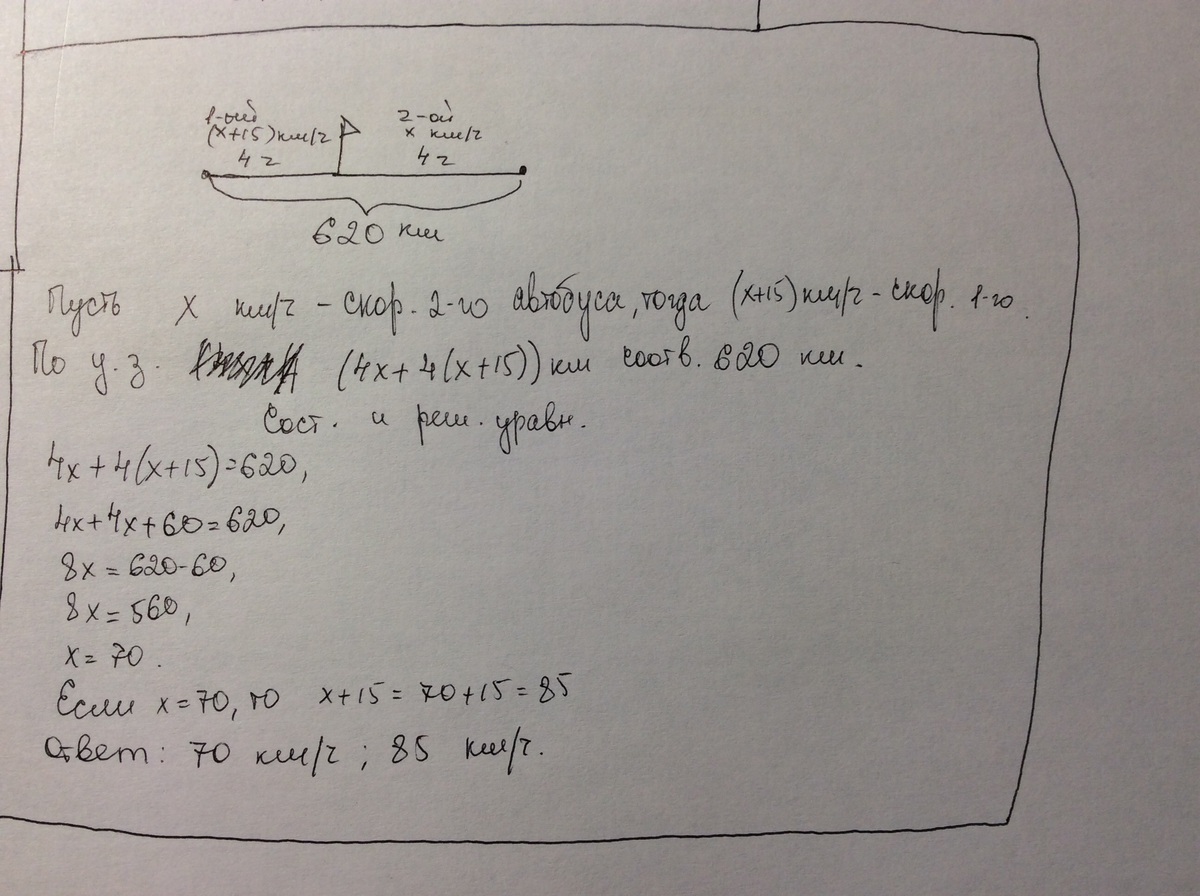 1-ый
(x+15) км/ч
4 ч
2-ой
x км/ч
4 ч
620 км
Пусть x км/ч - скор. 2-го автобуса, тогда (x+15) км/ч - скор. 1-го.
По у. з. (4x + 4(x+15)) км соотв. 620 км.
Сост. и реш. уравн.
4x + 4(x+15) = 620,
4x + 4x + 60 = 620,
8x = 620-60,
8x = 560,
x = 70.
Если x = 70, то x+15 = 70+15 = 85
Ответ: 70 км/ч ; 85 км/ч.